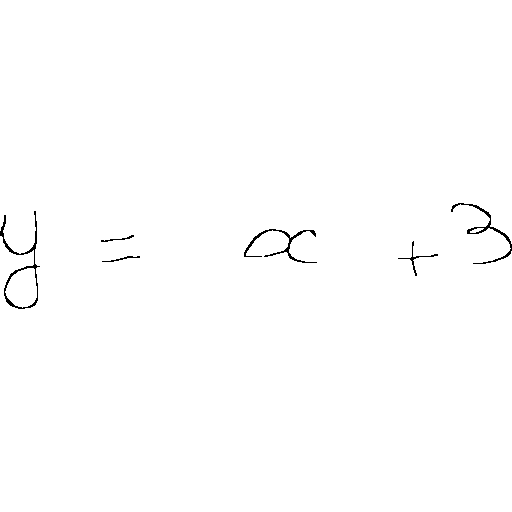 y = x + 3